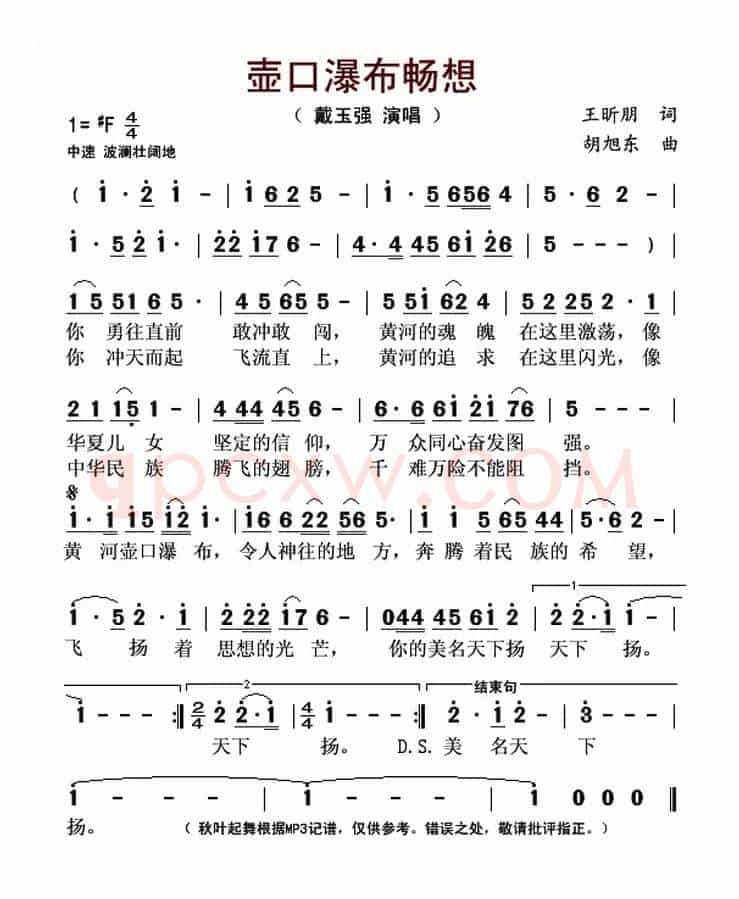 壶口瀑布畅想
（ 戴玉强 演唱 ）
王昕朋 词
胡旭东 曲
1= ♯F 4/4
中速 波澜壮阔地
( 1 · 2 1 - | 1 6 2 5 - | 1 · 5 6 5 6 4 | 5 - 6 2 - |
1 · 5 2 1 - | 2 2 1 7 6 - | 4 · 4 4 5 6 1 2 6 | 5 - - ) |
1 5 5 1 6 5 · | 2 4 5 6 5 5 - | 5 5 1 6 2 4 | 5 2 2 5 2 · 1 |
你 勇往直前 敢冲敢 闯， 黄河的魂 魄 在这里激荡，像
你 冲天而起 飞流直 上， 黄河的追 求 在这里闪光，像
2 1 1 5 1 - | 4 4 4 4 5 6 - | 6 · 6 6 1 2 1 7 6 | 5 - - - |
华夏儿 女 坚定的信 仰， 万 众同心奋发图 强。
中华民 族 腾飞的翅 膀， 千 难万险不能阻 挡。
qpcxw.COM
1 · 1 1 5 1 2 1 · | 1 6 6 2 2 5 6 5 · | 1 1 5 6 5 4 4 | 5 · 6 2 - - |
黄 河壶口瀑 布，令人神往的地 方，奔 腾着民族的希 望，
1 · 5 2 · 1 | 2 2 2 2 1 7 6 · | 0 4 4 4 5 6 1 2 | 2 2 · 1 |
1
飞 扬 着 思想的光 芒， 你的美名天下扬 天下 扬。
2
结束句
1 - - - :| 2/4 2 2 · 1 | 4/4 1 - - - :| 2 · 1 2 - | 3 - - - |
天下 扬。 D.S. 美 名天 下
1 - - - | 1 - - - | 1 0 0 0 ‖
扬。 （ 秋叶起舞根据MP3记谱，仅供参考。错误之处，敬请批评指正。）